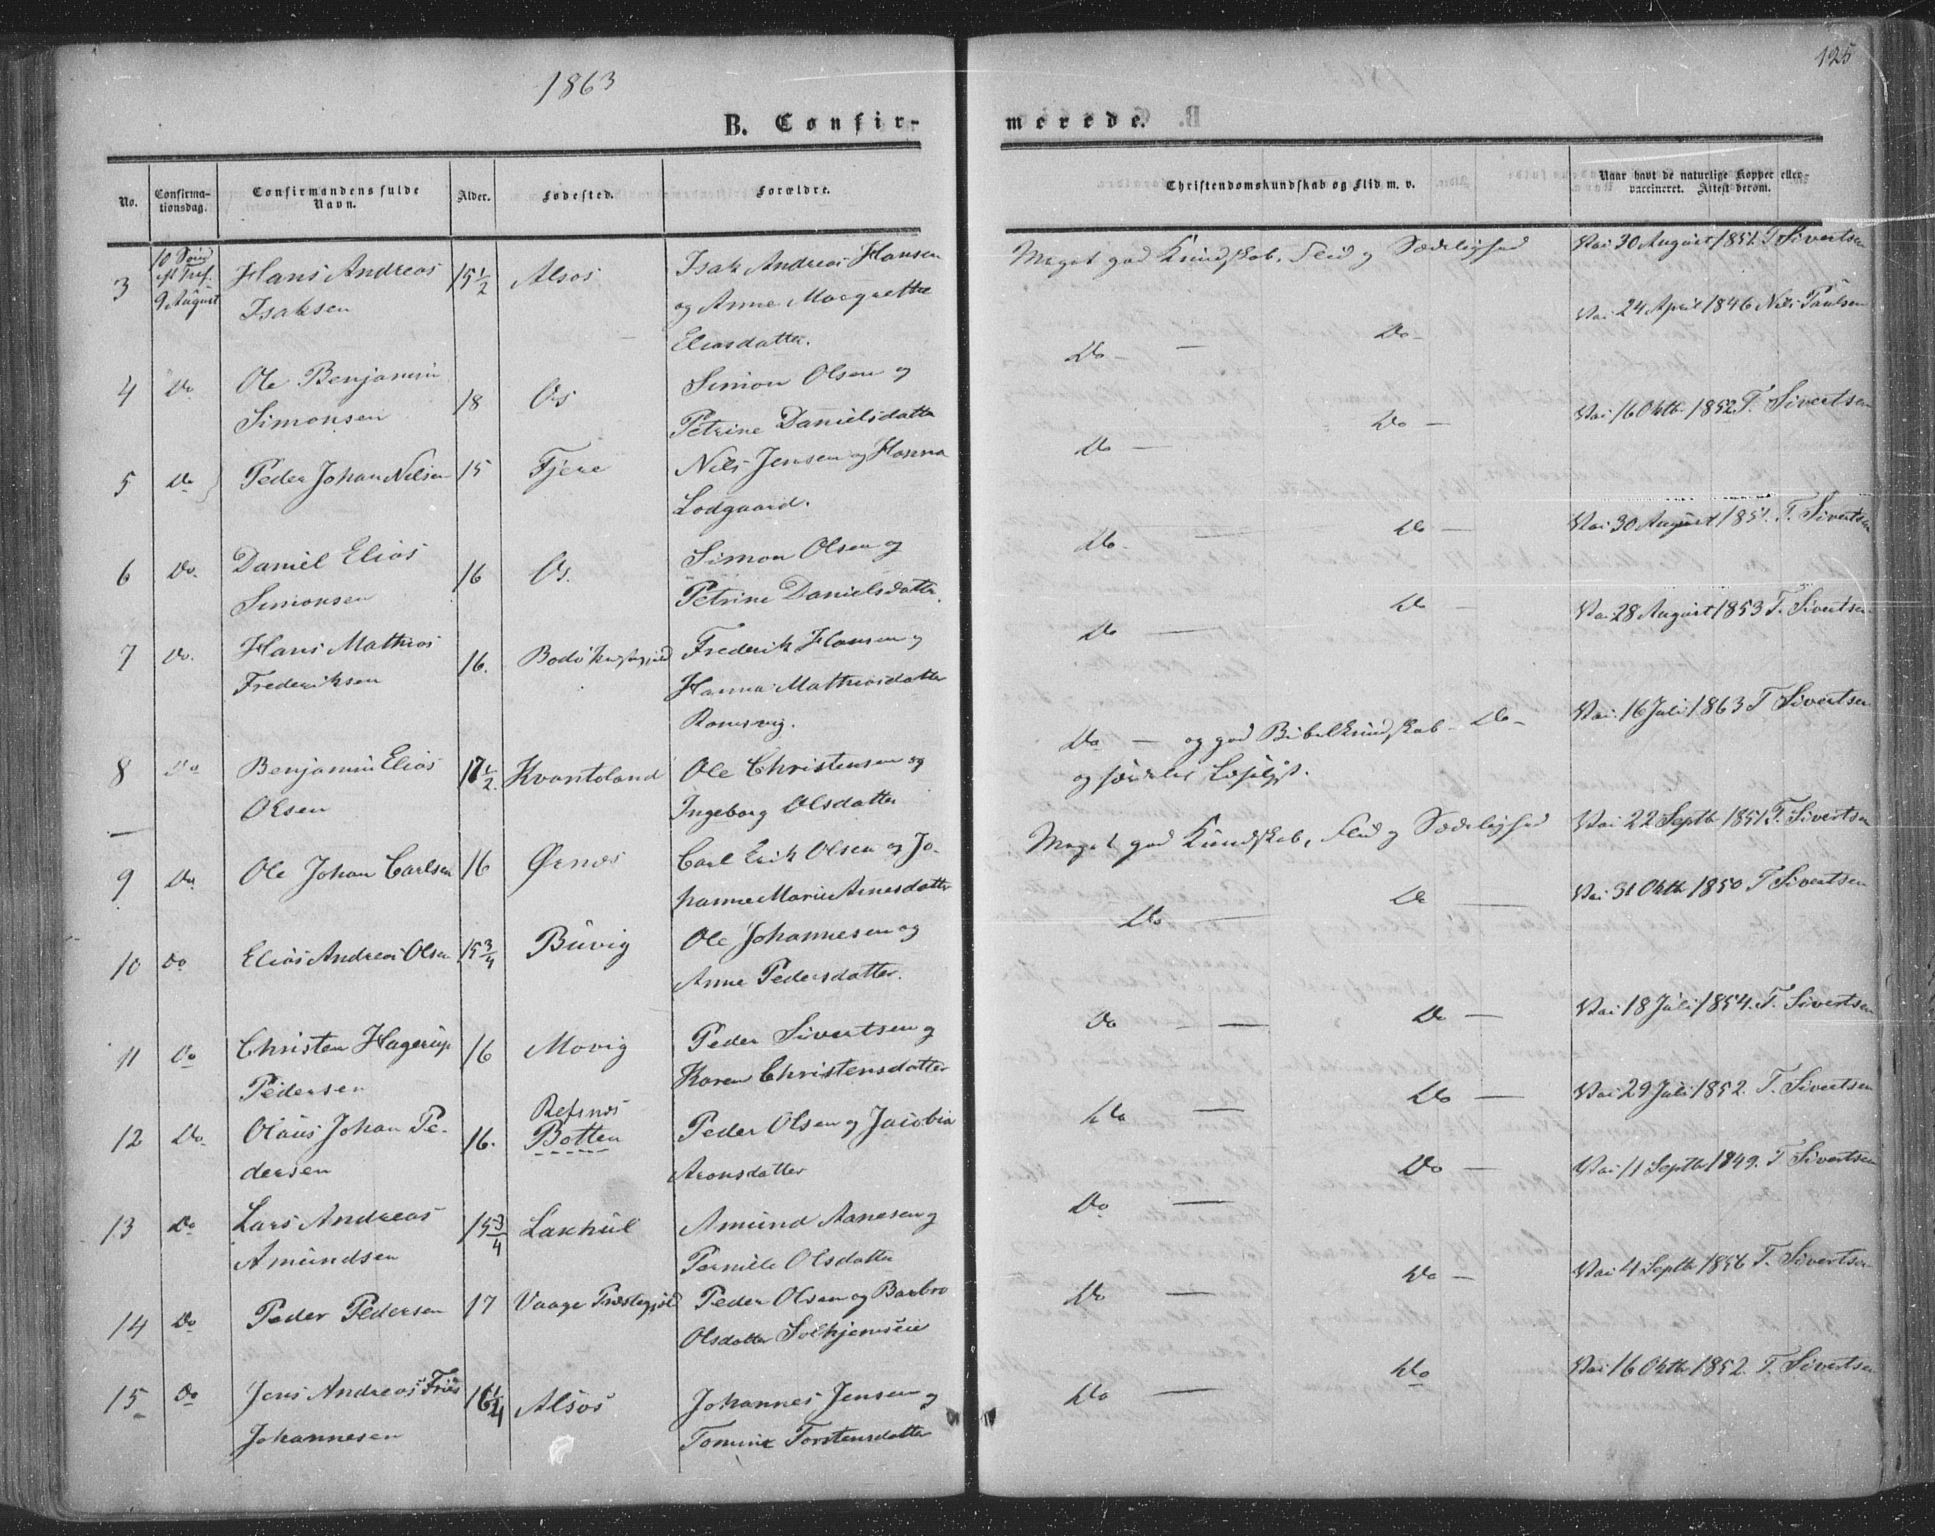 1863
125
B. Confir-
merede.
No.
Confirma-
tionsdag.
Confirmandens fulde
Navn.
Alder.
Fødested.
Forældre.
Christendomskundskab og Flid m. v.
Naar havt de naturlige Kopper eller
vaccineret. Attest derom.
3
9 August
Hans Andreas
Isaksen
15 1/2
Alsos
Isak Andreas Hansen
og Anne Margrethe
Eliasdatter.
Meget god Kundskab, Flid og Sædelighed
Vac 30 August 1851 T Sivertsen
4
Do
Ole Benjamin
Simonsen
18
Os
Simon Olsen og
Petrine Danielsdatter
Do — Do —
Vac 24 April 1846 Nils Paulsen
5
Do
Peder Johan Nilsen
15
Fjere
Nils Jensen og Hanna
Lodgaard.
Do — Do —
Vac 16 Oktb 1852 T. Sivertsen
6
Do.
Daniel Elias
Simonsen
16
Os.
Simon Olsen og
Petrine Danielsdatter.
Do — Do —
Vac 30 August 1851. T. Sivertsen
7
Do.
Hans Mathias
Frederiksen
16.
Bodø
Frederik Hansen og
Hanna Mathiasdatter
Do — Do —
Vac 28 August 1853 T. Sivertsen
8
Do
Benjamin Elias
Olsen
17 1/2
Kvantoland
Ole Christensen og
Ingeborg Olsdatter
Do — og god Bibelkundskab Do —
og
Vac 16 Juli 1863 T Sivertsen
9
Do
Ole Johan Carlsen
16
Ørnes
Carl Erik Olsen og Jo-
hanne Marie Arnesdatter
Meget god Kundskab, Flid og Sædelighed
Vac 22 Septb 1851 T. Sivertsen
10
Do
Elias Andreas Olsen
15 3/4
Buvig
Ole Johannesen og
Anne Pedersdatter.
Do — Do —
Vac 31 Oktb 1850 T Sivertsen
11
Do
Christen Hagerup
Pedersen
16
Movig
Peder Sivertsen og
Karen Christensdatter
Do — Do —
Vac 18 Juli 1854. T. Sivertsen
12
Do.
Olaus Johan Pe-
dersen
16.
Refsnes
Botten
Peder Olsen og Jacobia
Aronsdatter
Do — Do —
Vac 29 Juli 1852. T. Sivertsen
13
Do
Lars Andreas
Amundsen
15 3/4
Laxhul
Amund Aanesen og
Pernille Olsdatter
Do — Do —
Vac 11 Septb 1849. T Sivertsen
14
Do
Peder Pedersen
17
Vaage Præstegjeld
Peder Olsen og Barbro
Olsdatter
Do — Do —
Vac 4 Septb 1856 T. Sivertsen
15
Do
Jens Andreas Friis
Johannesen
16 1/4
Alsos
Johannes Jensen og
Tomine Torstensdatter
Do — Do
Vac 16 Oktb 1852. T. Sivertsen